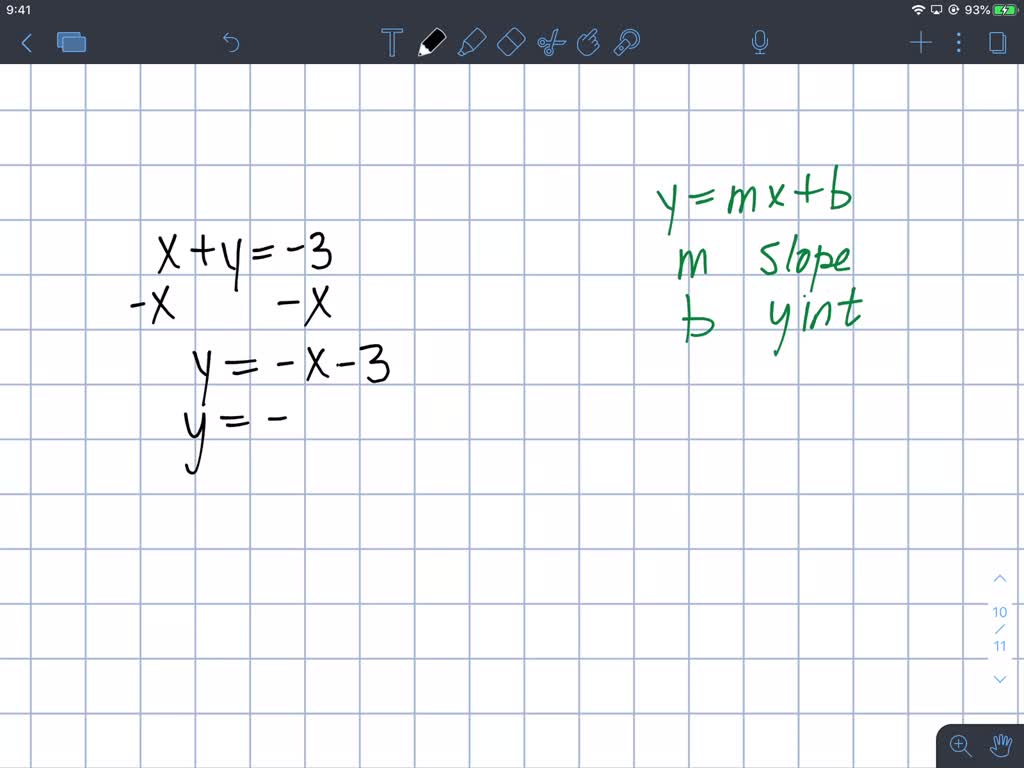 9:41
93%
T
x+y=-3
-x -x
y=-x-3
y=-
y=mx+b
m slope
b y int
10
/
11